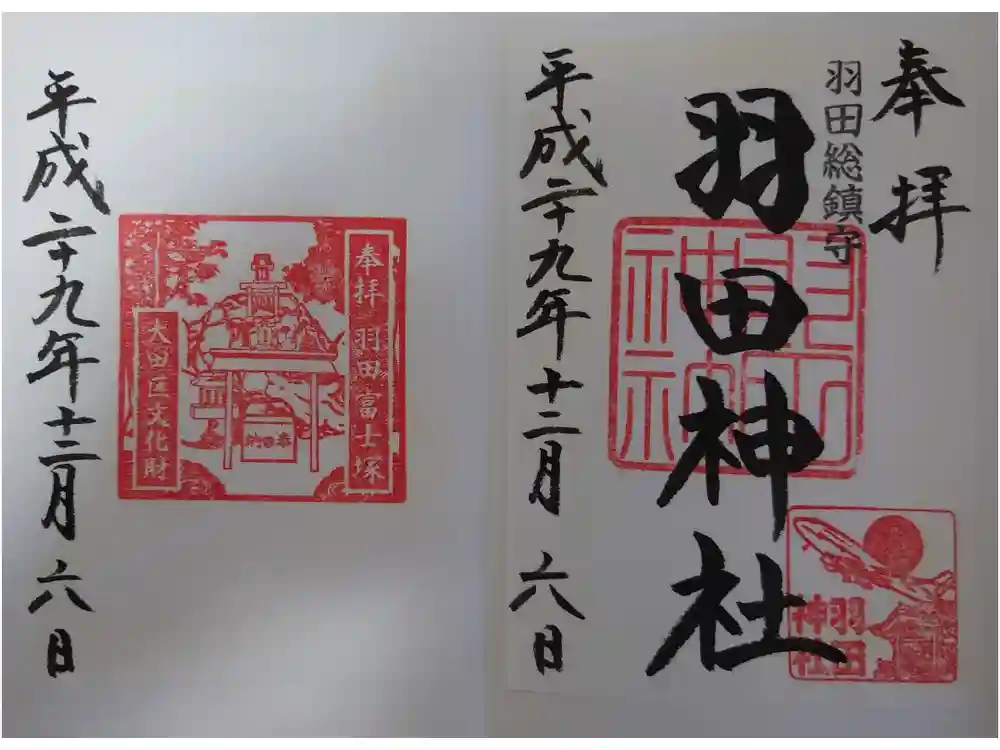 奉拝
羽田総鎮守
羽田神社
羽田神社
平成二十九年十二月六日
奉拝 羽田富士塚
大田区文化財
奉納
平成二十九年十二月六日